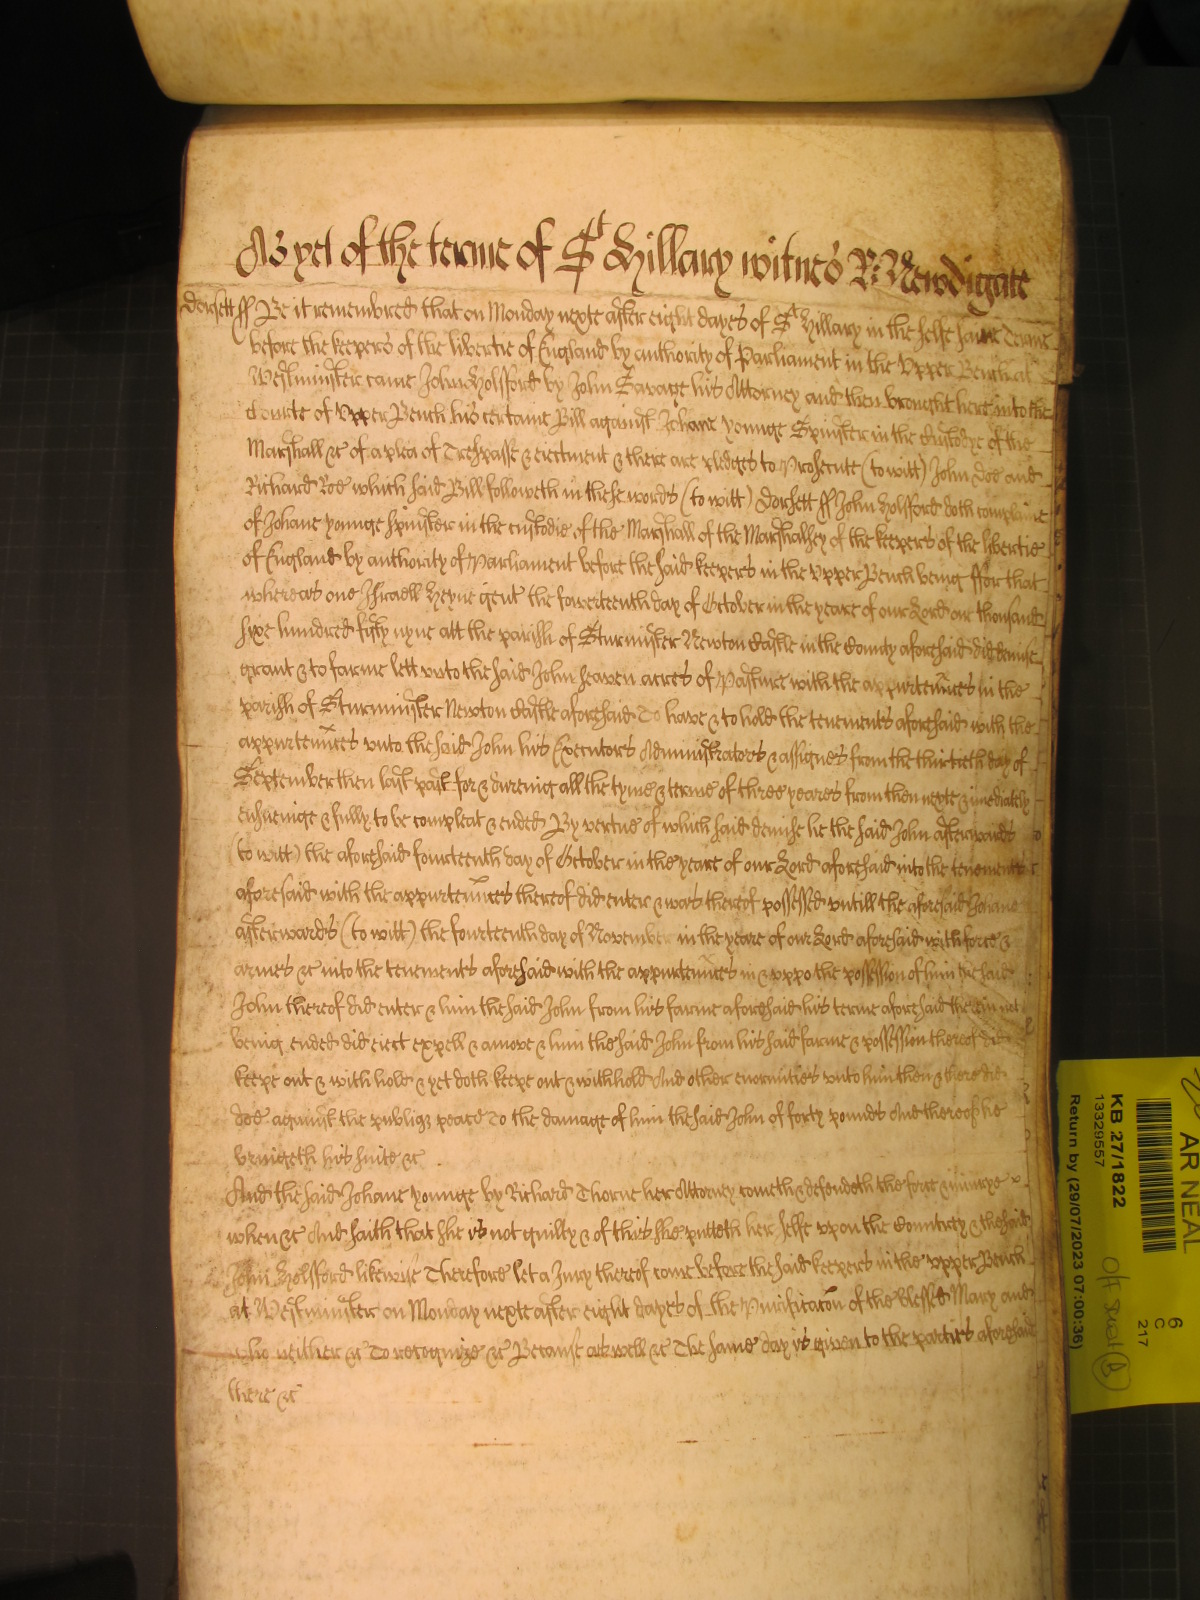 As yet of the terme of St Hillary witnes R: Newdigate
Dorsett ss Be it remembred that on Monday nexte after eight dayes of St Hillary in the selfe same Terme
before the keepers of the libertie of England by authority of Parliament in the Upper Bench at
Westminster came John Holsford by John Savage his Attorney and then brought here into the
Courte of Upper Bench his certaine Bill against Johane Younge Spinster in the Custodye of the
Marshall &c of a plea of Trespasse & eiectment & there are pledges to Prosecute (to witt) John Doe and
Richard Roe which said Bill followeth in these words (to witt) Dorsett ss John Holsford doth complaine
of Johane younge spinster in the custodie of the Marshall of the Marshalsey of the keepers of the libertie
of England by authority of Parliament before the said keepers in the Upper Bench being ffor that
whereas one Israell Heyne gent the fowerteenth day of October in the yeare of our Lord one thousand
sixe hundred fifty nyne att the parish of Sturminster Newton Castle in the County aforesaid did demise
grant & to farme lett unto the said John seaven acres of Pasture with the appurtennces in the
parish of Sturminster Newton Castle aforesaid To have & to hold the tenements aforesaid with the
appurtennces unto the said John his Executors Administrators & assignes from the thirtieth day of
September then last past for & dureing all the tyme & terme of three yeares from then nexte & imediately
ensueinge & fully to be compleat & ended By vertue of which said demise he the said John afterwards
(to witt) the aforesaid fourteenth day of October in the yeare of our Lord aforesaid into the tenements
aforesaid with the appurtennces thereof did enter & was thereof possessed untill the aforesaid Johane
afterwards (to witt) the fourteenth day of November in the yeare of our Lord aforesaid with force &
armes &c into the tenements aforesaid with the appurtennces in & uppo the possession of him the said
John thereof did enter & him the said John from his farme aforesaid his terme aforesaid therein not
being ended did eiect expell & amove & him the said John from his said farme & possession thereof did
keepe out & with hold & yet doth keepe out & withhold And other enormities unto him then & there did
doe against the publique peace To the damage of him the said John of forty pounds And thereof he
bringeth his suite &c
And the said Johane younge by Richard Thorne her Attorney cometh & defendeth the force & iniurye
when &c And saith that she is not guilty & of this she putteth her selfe upon the Countrey & the said
John Holsford likewise Therefore let a Jury thereof come before the said keepers in the Upper Bench
at Westminster on Monday nexte after eight dayes of the Purificacon of the blessed Mary and
who neither &c To recognize &c Because aswell &c The same day is given to the parties aforesaid
there &c
AR NEAL
KB 27/1822
13329557
Return by (29/07/2023 07:00:36)
6
C
217